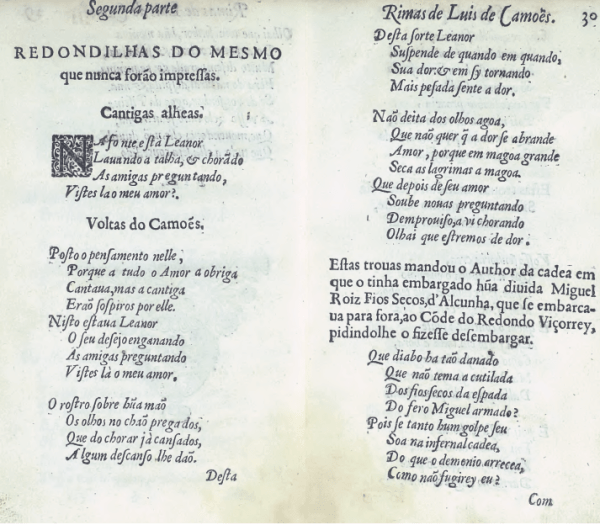 Segunda parte
REDONDILHAS DO MESMO
que nunca forão impressas.
Cantigas alheas.
NA fonte está Leanor
Lauando a talha, & chorãdo
As amigas preguntando,
Vistes la o meu amor?.
Voltas do Camoẽs.
Posto o pensamento nelle,
Porque a tudo o Amor a obriga
Cantaua, mas a cantiga
Erão sospiros por elle.
Nisto estaua Leanor
O seu desejo enganando
As amigas preguntando
Vistes là o meu amor.
O rostro sobre hũa mão
Os olhos no chão pregados,
Que do chorar jà cansados,
Algum descanso lhe dão.
Desta
Rimas de Luis de Camoẽs. 30
Desta sorte Leanor
Suspende de quando em quando,
Sua dor: & em sy tornando
Mais pesada sente a dor.
Não deita dos olhos agoa,
Que não quer q̃ a dor se abrande
Amor, porque em magoa grande
Seca as lagrimas a magoa.
Que depois de seu amor
Soube nouas preguntando
Demprouiso, a vi chorando
Olhai que estremos de dor.
Estas trouas mandou o Author da cadea em
que o tinha embargado hũa diuida Miguel
Roiz Fios Secos, d'Alcunha, que se embarca-
ua para fora, ao Cõde do Redondo Viçorrey,
pidindolhe o fizesse desembargar.
Que diabo ha taõ danado
Que naõ tema a cutilada
Dos fios secos da espada
Do fero Miguel armado?
Pois se tanto hum golpe seu
Soa na infernal cadea,
Do que o demonio arrecea,
Como naõ fugirey eu?
Com